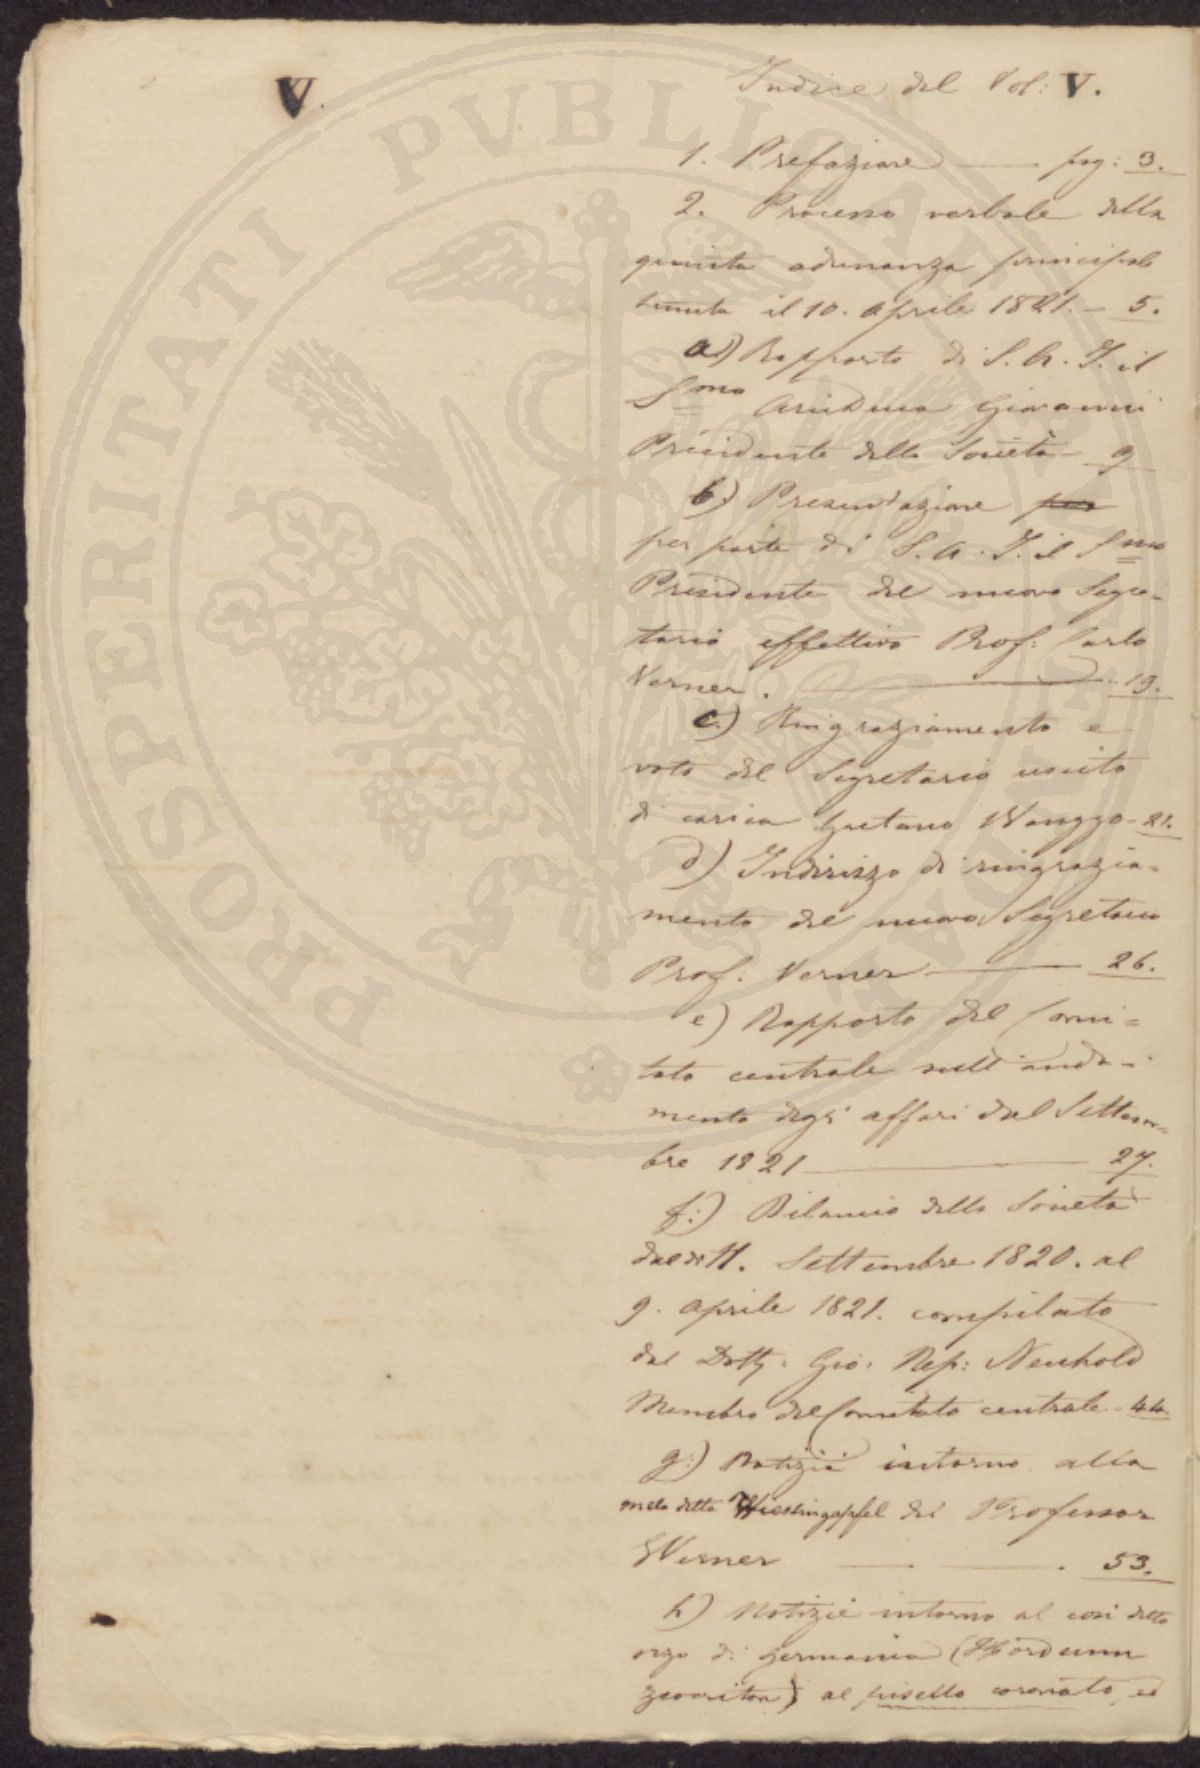 V.
Indice del Vol: V.
1. Prefazione — pag: 3.
2. Processo verbale della
quinta adunanza principale
tenuta il 10. aprile 1821. — 5.
a) Rapporto di S. A. I. il
Smo Arciduca Giovanni
Presidente della Società — 9
b) Presentazione per
per parte di S. A. I. il Smo
Presidente del nuovo Segre-
tario effettivo Prof: Carlo
Verner. — 19.
c.) Ringraziamento e
voto del Segretario uscito
di carica Gaetano Wanggo - 21.
d) Indirizzo di ringrazia-
mento del nuovo Segretario
Prof. Verner — 26.
e) Rapporto del Comi=
tato centrale sull'anda-
mento degli affari dal Settem=
bre 1821 — 27.
f.) Bilancio della Società
dal di 11. Settembre 1820. al
9. aprile 1821. compilato
dal Dott: Gio: Nep: Neuhold
Membro del Comitato centrale - 44.
g.) Notizie intorno alla
mela detta Wieslingapfel del Professor
Werner — 53.
h) Notizie intorno al così detto
orzo di germania (Hordeum
zeocriton) al pisello coronato, ed
PROSPERITATI PVBLICAE AVGENDAE